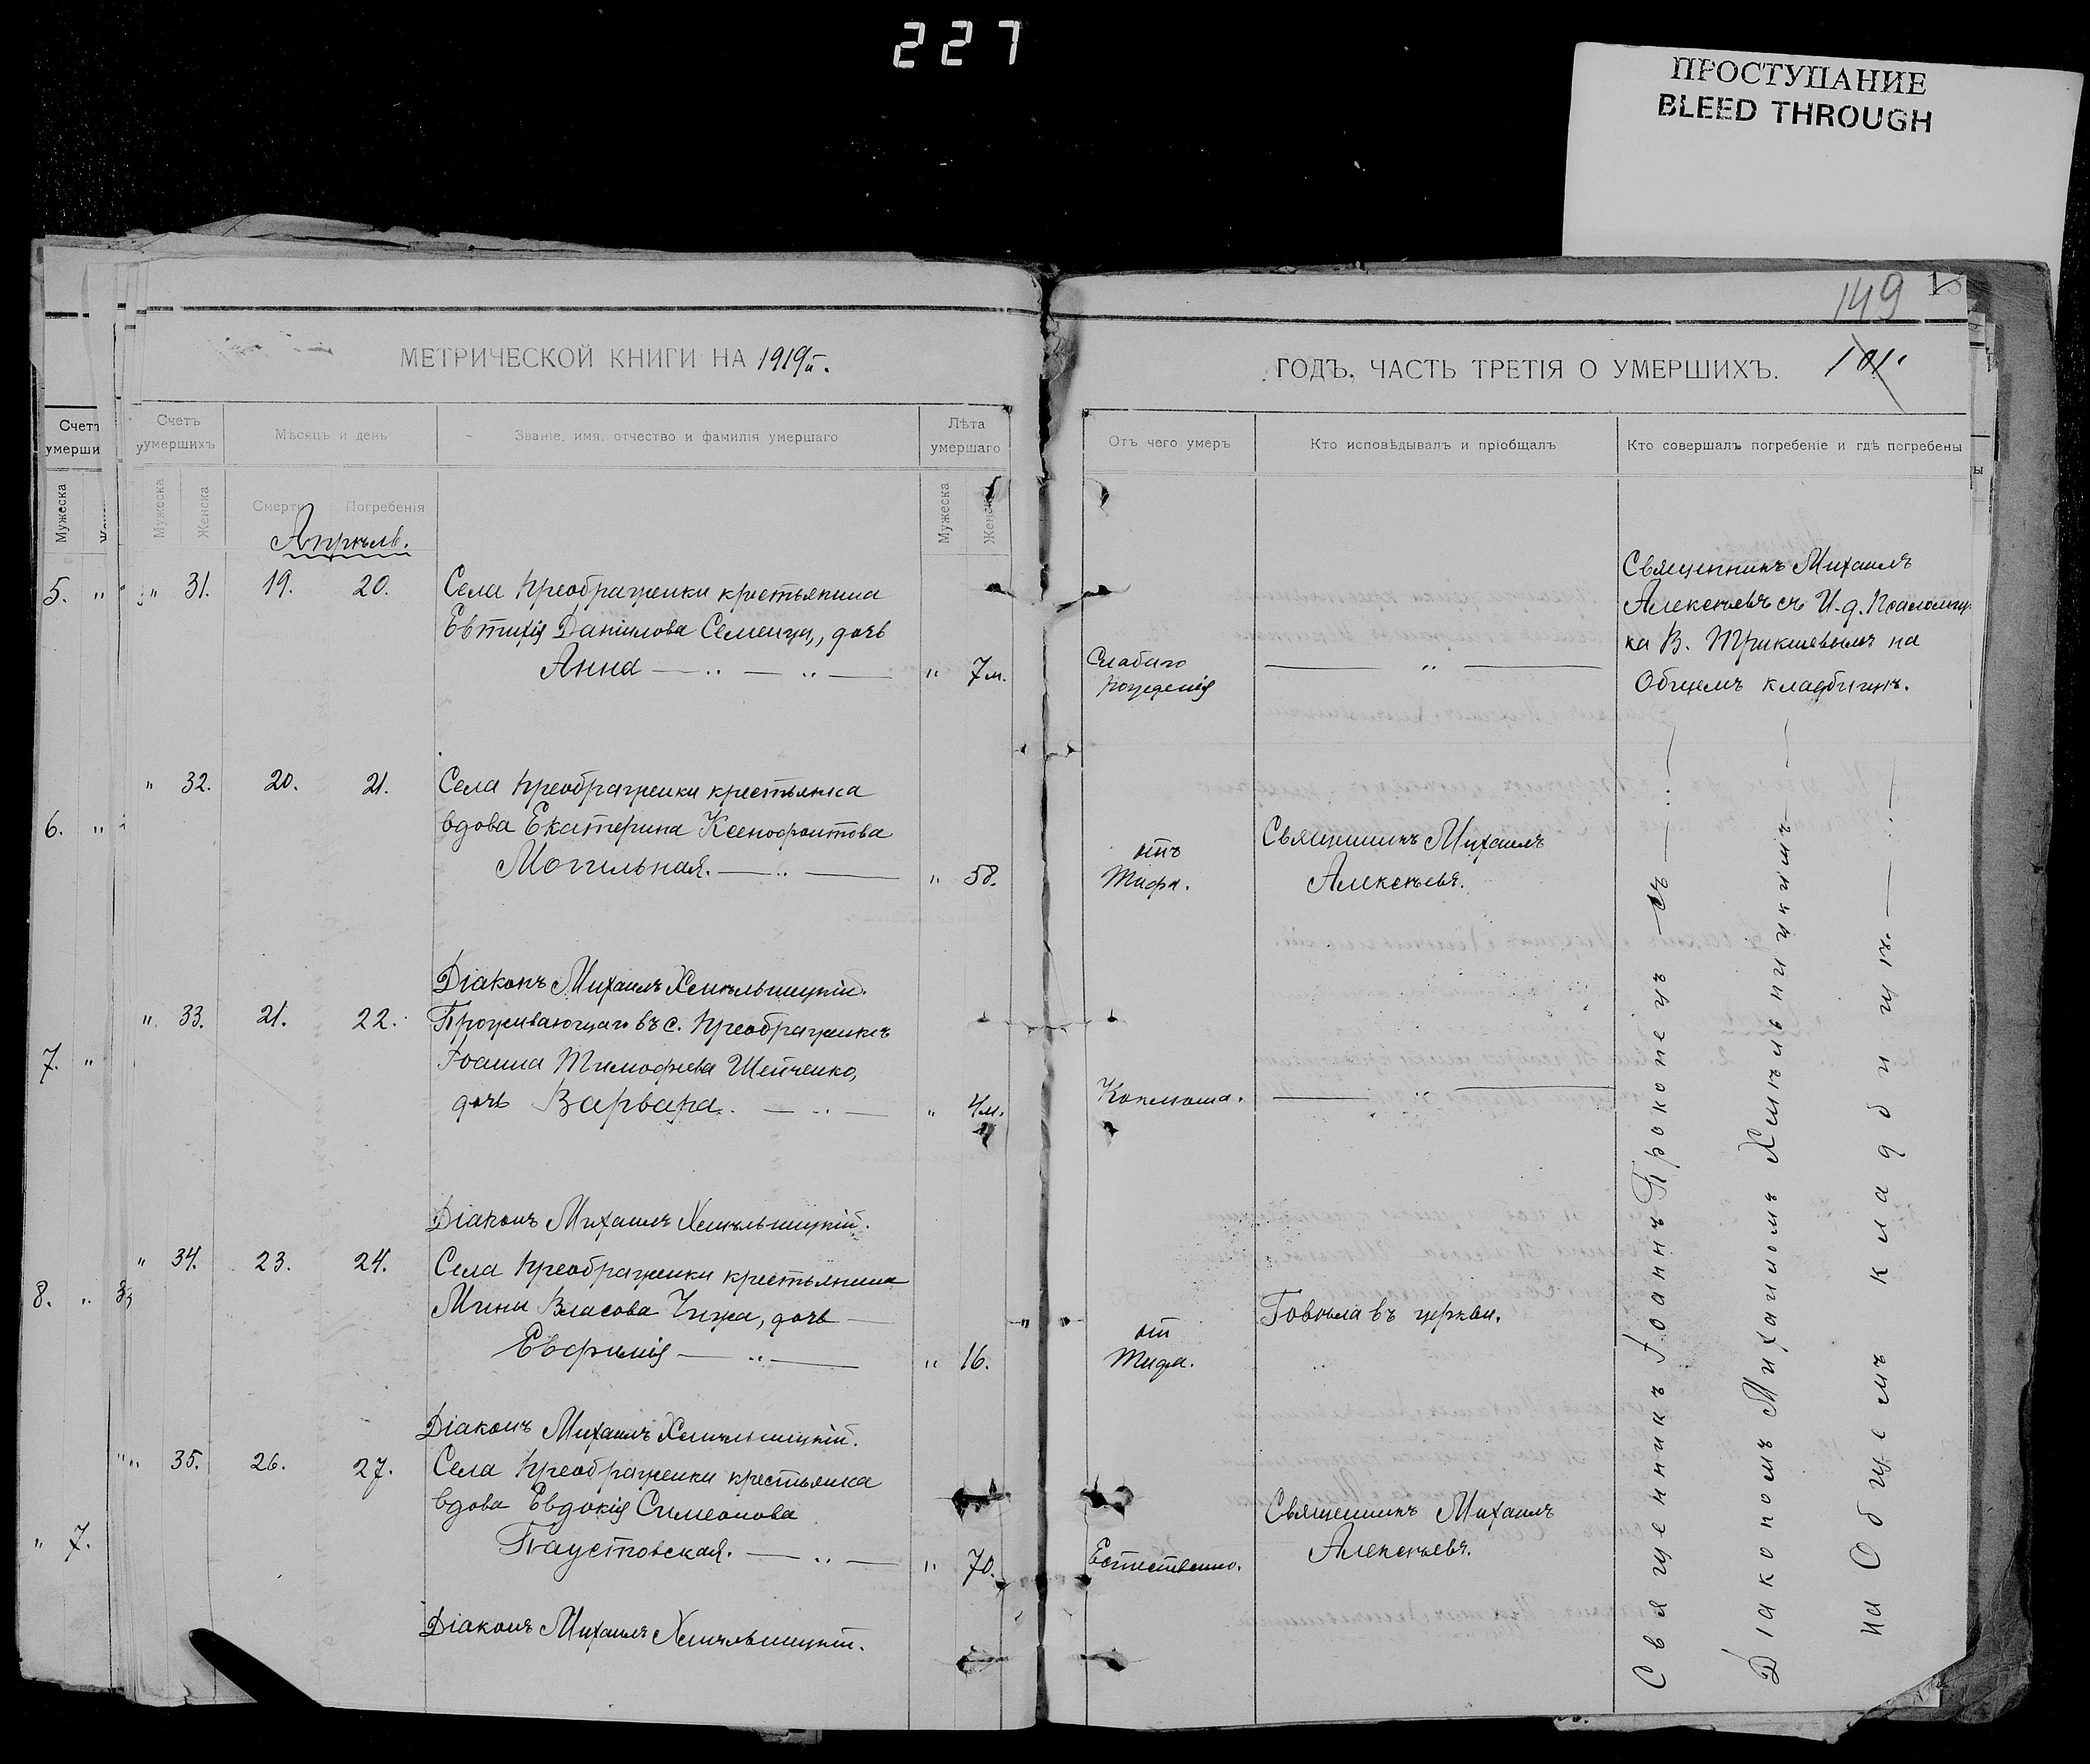 227
ПРОСТУПАНИЕ
BLEED THROUGH
149
101.
МЕТРИЧЕСКОЙ КНИГИ НА 1919й.
ГОДЪ, ЧАСТЬ ТРЕТІЯ О УМЕРШИХЪ.
Счетъ умершихъ
Мѣсяцъ и день
Званіе, имя, отчество и фамилія умершаго
Лѣта умершаго
Отъ чего умеръ
Кто исповѣдывалъ и пріобщалъ
Кто совершалъ погребеніе и гдѣ погребены
Мужеска
Женска
Смерти
Погребенія
Мужеска
Женска
Апрѣль.
" 31. 19. 20.
Села Преображенки крестьянина
Евтихія Даніилова Семенца, дочь
Анна
" 7м.
Слабаго
рожденія
Священникъ Михаилъ
Алексѣевъ съ И. д. Псаломщи
ка В. на
Общемъ кладбищѣ.
" 32. 20. 21.
Села Преображенки крестьянка
вдова Екатерина Ксенофонтова
Могильная.
" 58.
отъ
Тифа.
Священникъ Михаилъ
Алексѣевъ.
Діаконъ Михаилъ Хмѣльницкій.
" 33. 21. 22.
Проживающаго въ с. Преображенкѣ
Іоанна Тимофеева Шейченко,
дочь Варвара.
" 4м.
Коклюша.
Діаконъ Михаилъ Хмѣльницкій.
" 34. 23. 24.
Села Преображенки крестьянина
Мины Власова Чижа, дочь
Евфимія
" 16.
от
Тифа.
Говѣла въ церкви.
Діаконъ Михаилъ Хмѣльницкій.
" 35. 26. 27.
Села Преображенки крестьянка
вдова Евдокія Симеонова
Паустовская.
" 70.
Естественно.
Священникъ Михаилъ
Алексѣевъ.
Діаконъ Михаилъ Хмѣльницкій.
Священникъ Іоаннъ Прокопецъ съ
Діакономъ Михаиломъ Хмѣльницкимъ
на Общемъ кладбищѣ.
Счетъ
умерши
Мужеска
5. "
6. "
7. "
8. "
" 7.